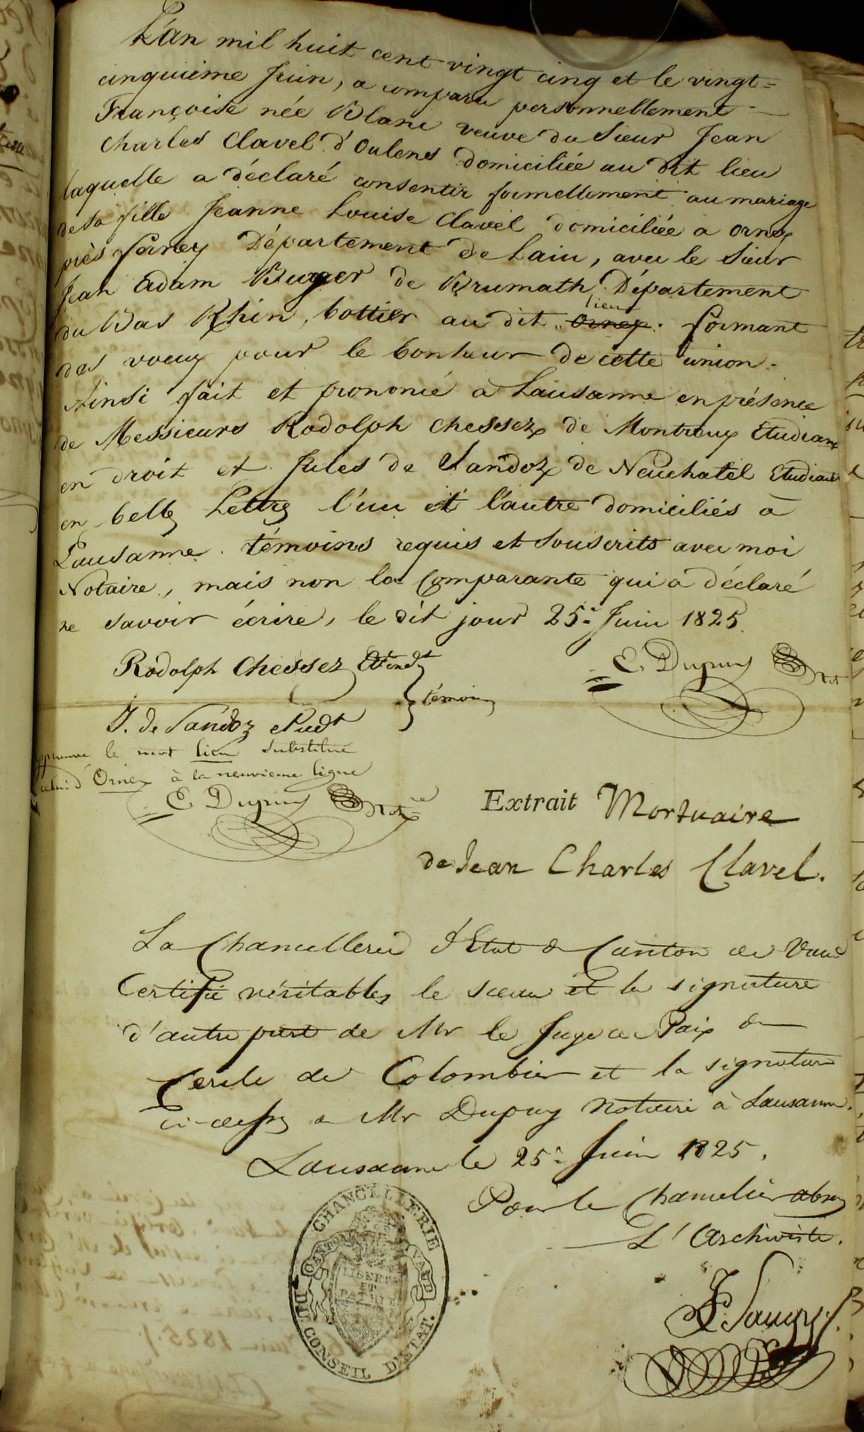 L'an mil huit cent vingt cinq et le vingt=
cinquième Juin, a comparu personnellement
Françoise née Blanc veuve du Sieur Jean
Charles Clavel d'Oulens domiciliée au dit lieu
laquelle a déclaré consentir formellement au mariage
de sa fille Jeanne Louise Clavel domiciliée à Ornex
près Ferney Département de Lain, avec le Sieur
Jean Adam Burger de Brumath Département
du Bas Rhin, bottier au dit Ornex lieu. formant
des voeux pour le bonheur de cette union.
Ainsi fait et prononcé à Lausanne en présence
de Messieurs Rodolph Chessex de Montreux Etudiant
en droit et Jules de Sandoz de Neuchatel Etudiant
en belles Lettres l'un et l'autre domiciliés à
Lausanne témoins requis et souscrits avec moi
Notaire, mais non la Comparante qui a déclaré
ne savoir écrire, le dit jour 25e Juin 1825.
Rodolph Chessex Etudt
témoins
E. Dupuy Not
J. de Sandoz etudt
approuvé le mot lieu substitué
celui d'Ornex à la neuvieme ligne
E. Dupuy Notre
Extrait Mortuaire
de Jean Charles Clavel.
La Chancellerie d'Etat du Canton de Vaud
Certifie véritables le sceau et la signature
d'autre part de Mr le Juge de Paix du
Cercle de Colombier et la signature
ci-dessus de Mr Dupuy Notaire à Lausanne.
Lausanne le 25e Juin 1825.
Pour le Chancelier absent
L'Archiviste.
CHANCELLERIE
DU CONSEIL D'ETAT.
CANTON VAUD
LIBERTÉ
ET
PATRIE